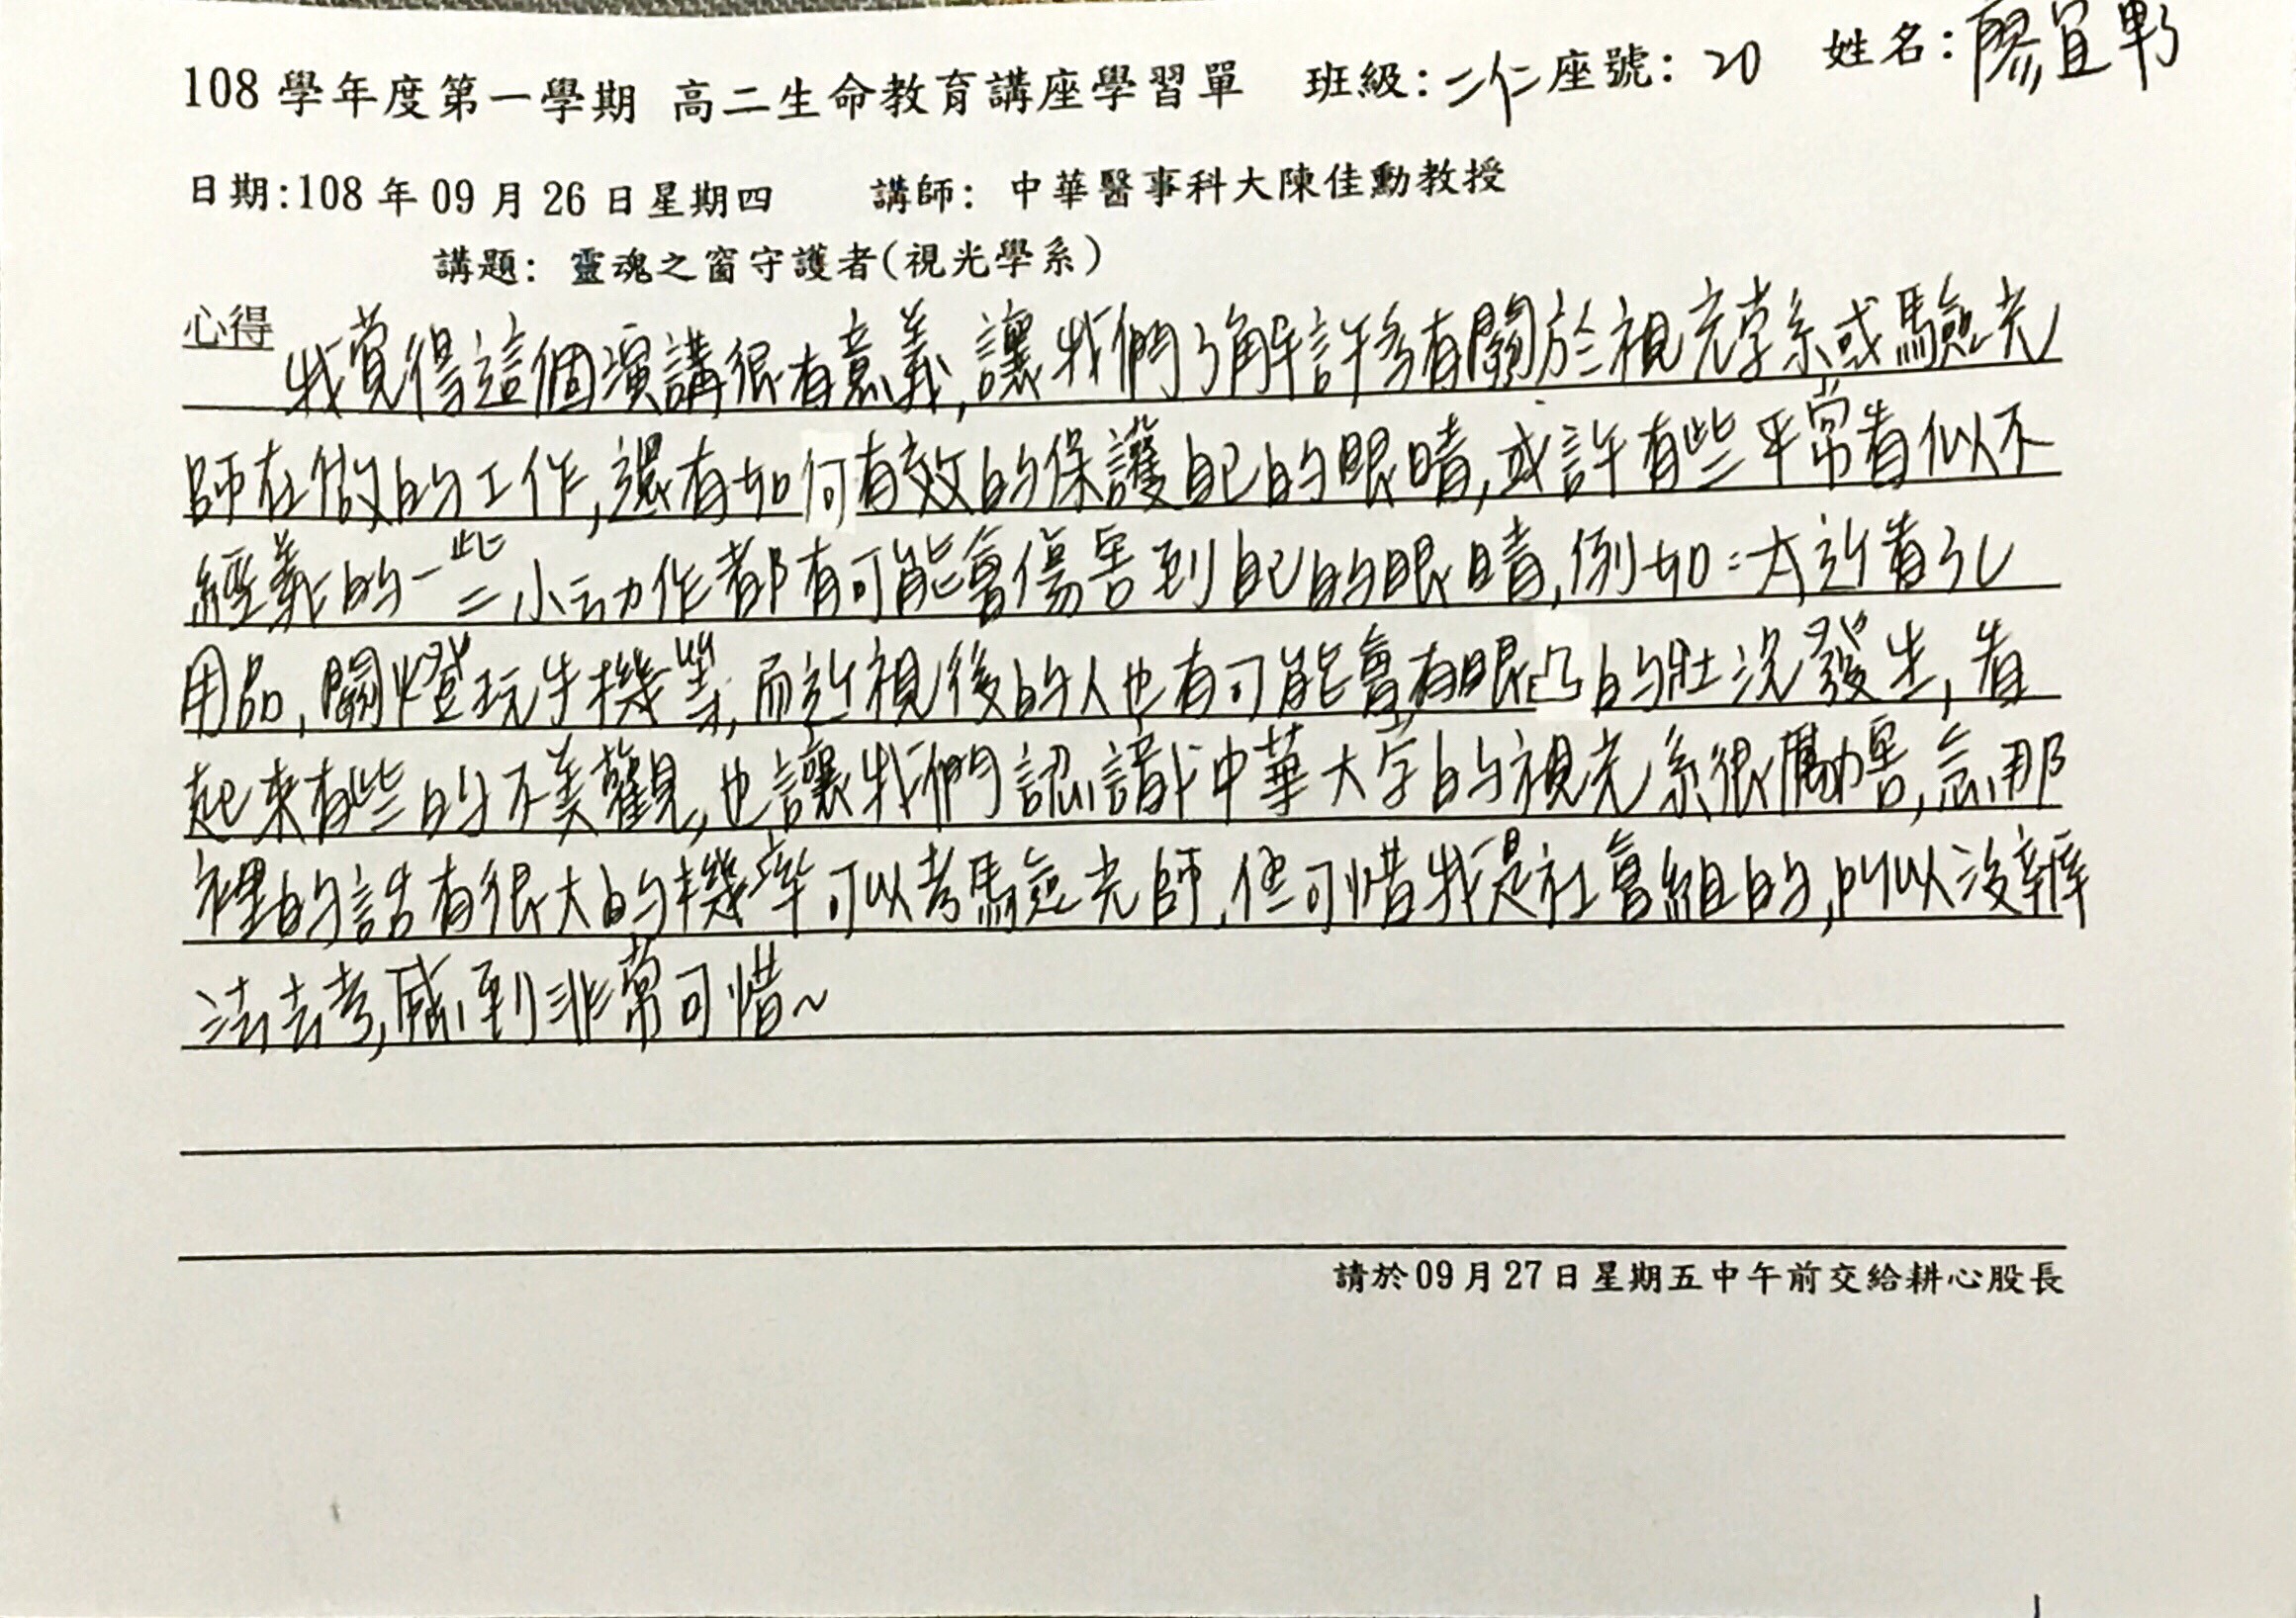 108 學年度第一學期 高二生命教育講座學習單 班級:二仁座號: 20 姓名:廖宜
日期:108 年 09 月 26 日星期四 講師: 中華醫事科大陳佳勳教授
講題: 靈魂之窗守護者(視光學系)
心得
我覚得這個演講很有意義,讓我們了解許多有關於視光学系或驗光
師在做的工作,還有如何有效的保護自己的眼睛,或許有些平常看似不
經義的一些小动作都有可能會傷害到自己的眼睛,例如:太近看3C
用品,關燈玩手機等,而近視後的人也有可能會有眼凸的壯況發生,看
起來有些的不美觀,也讓我們認識中華大学的視光系很厲害,念那
裡的話有很大的機率可以考驗光師,但可惜我是社會組的,所以沒辦
法去考,感到非常可惜~
請於09月27日星期五中午前交給耕心股長